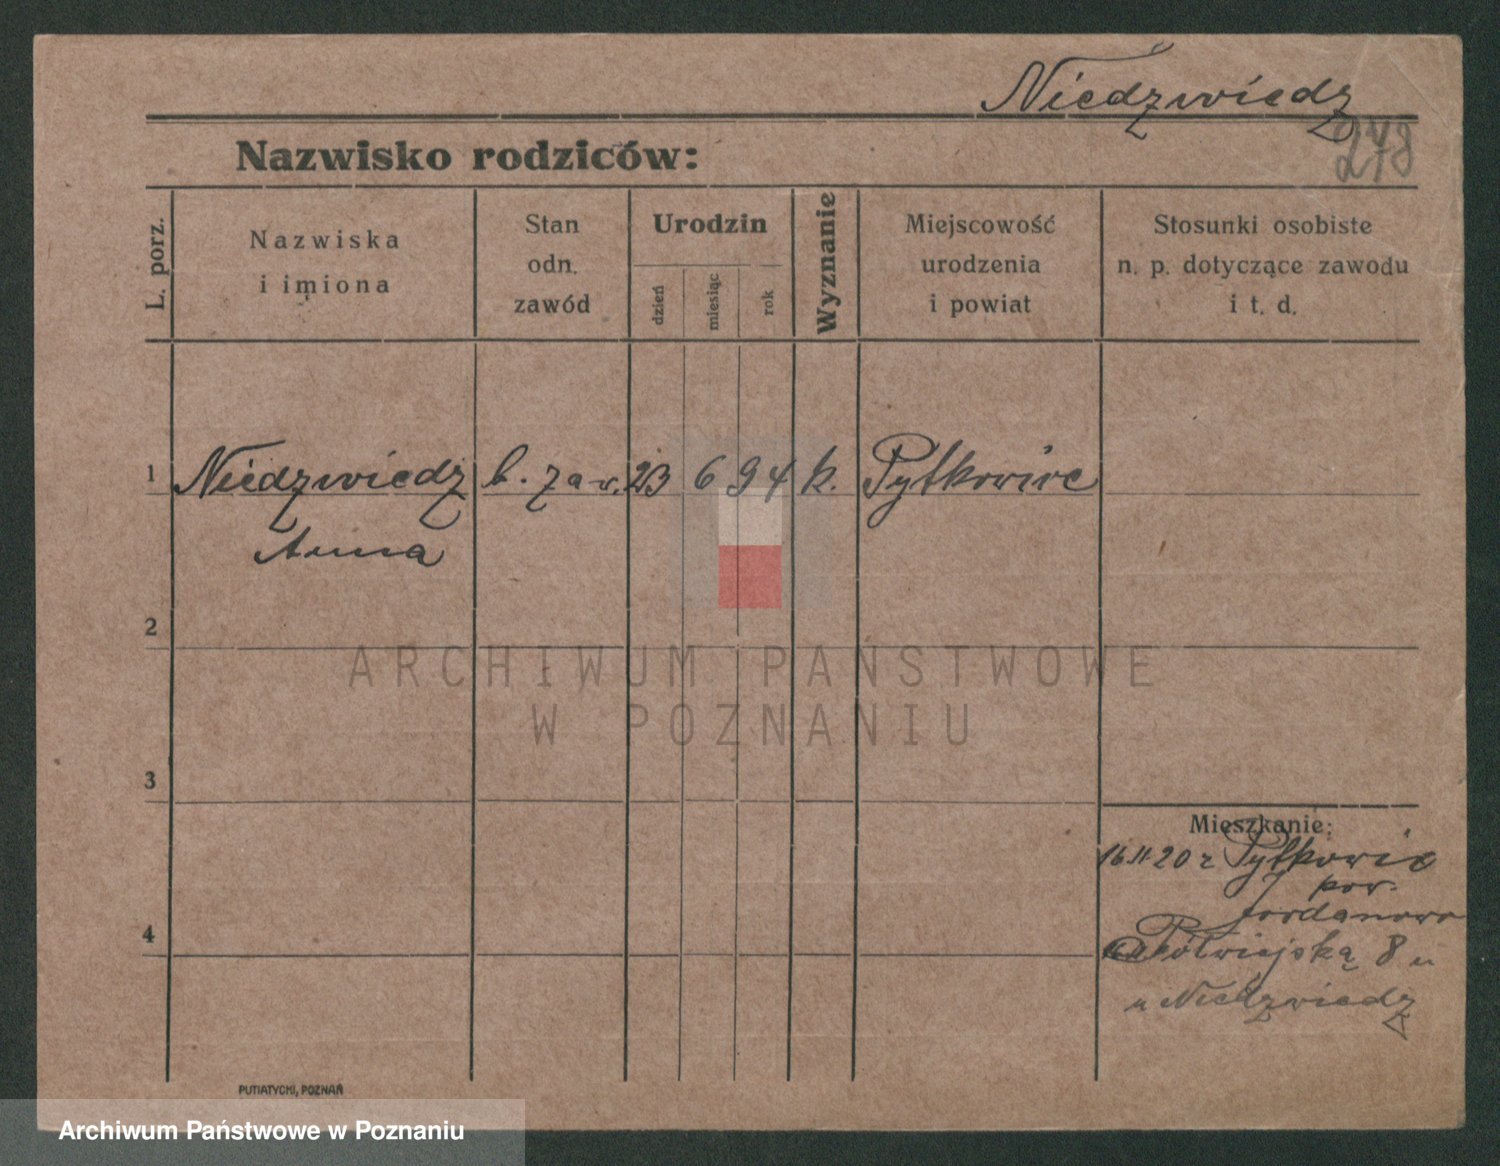 Niedzwiedz
278
Nazwisko rodziców:
L. porz.
Nazwiska
i imiona
Stan
odn.
zawód
Urodzin
dzień
miesiąc
rok
Wyznanie
Miejscowość
urodzenia
i powiat
Stosunki osobiste
n. p. dotyczące zawodu
i t. d.
1 Niedzwiedz b. zaw. 23 6 94 k. Pytkowice
Anna
2
ARCHIWUM PAŃSTWOWE
W POZNANIU
3
Mieszkanie:
16.II.20 z Pytkowic
pow.
Jordanowo
4
Półwiejską 8 u
u Niedzwiedz
PUTIATYCKI, POZNAŃ
Archiwum Państwowe w Poznaniu